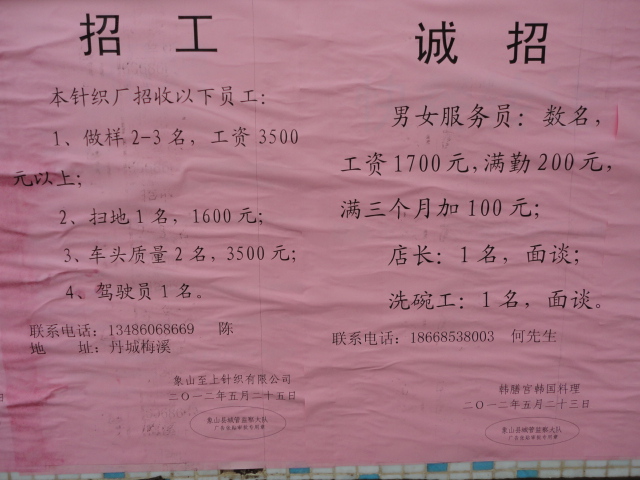 招 工
本针织厂招收以下员工：
1、做样2-3名，工资3500
元以上；
2、扫地1名，1600元；
3、车头质量2名，3500元；
4、驾驶员1名。
联系电话：13486068669 陈
地 址：丹城梅溪
象山至上针织有限公司
二〇一二年五月二十五日
象山县城管监察大队
诚 招
男女服务员：数名，
工资1700元，满勤200元，
满三个月加100元；
店长：1名，面谈；
洗碗工：1名，面谈。
联系电话：18668538003 何先生
韩膳宫韩国料理
二〇一二年五月二十三日
象山县城管监察大队
日